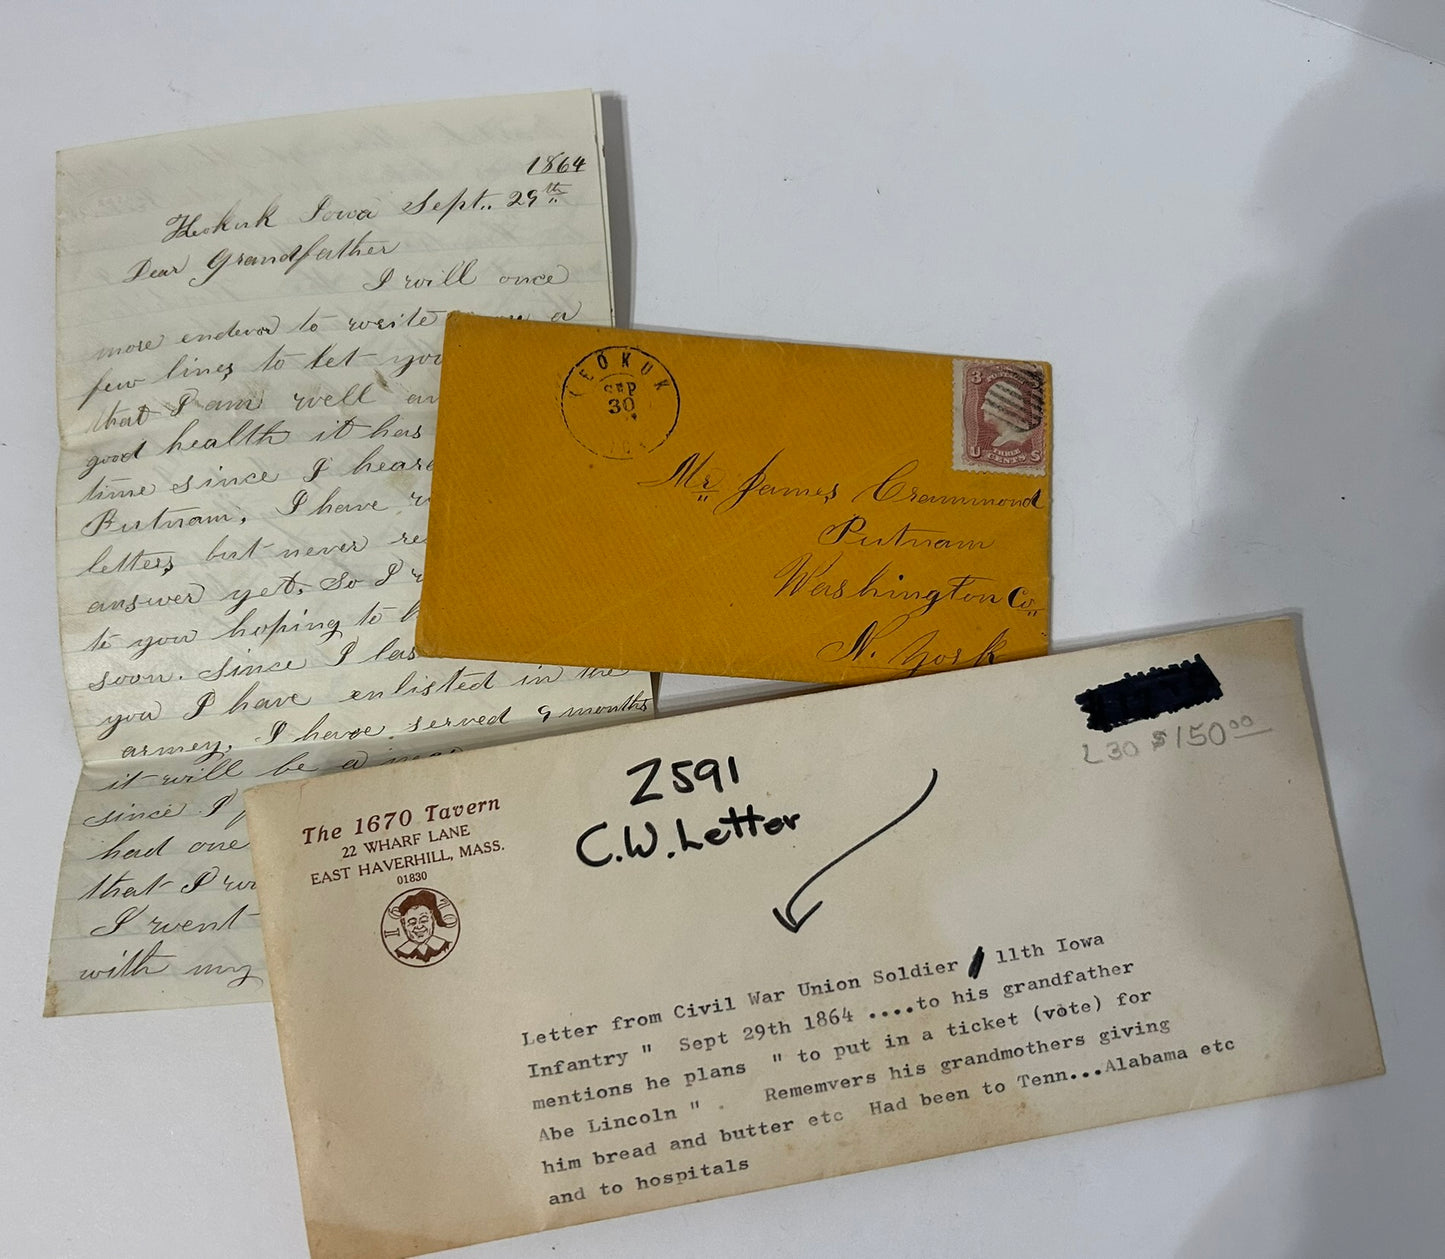 1864
Keokuk Iowa Sept.. 29th
Dear Grandfather
I will once
more endevor to write a
few lines to let you
that I am well
good health it has
time since I heard
Putnam, I have
letters, but never
answer yet, So I
to you hoping to
soon. Since I las
you I have enlisted in the
armey, I have served 9 months
it will be a
since I
had one
that I
I went
with my
KEOKUK
SEP
30
3
U THREE CENTS S
Mr James Crammond
Putnam
Washington Co,
N. York
L30 $150.00
Z591
C.W. Letter
The 1670 Tavern
22 WHARF LANE
EAST HAVERHILL, MASS.
01830
1670
Letter from Civil War Union Soldier 11th Iowa
Infantry " Sept 29th 1864 ....to his grandfather
mentions he plans " to put in a ticket (vote) for
Abe Lincoln " . Rememvers his grandmothers giving
him bread and butter etc Had been to Tenn...Alabama etc
and to hospitals